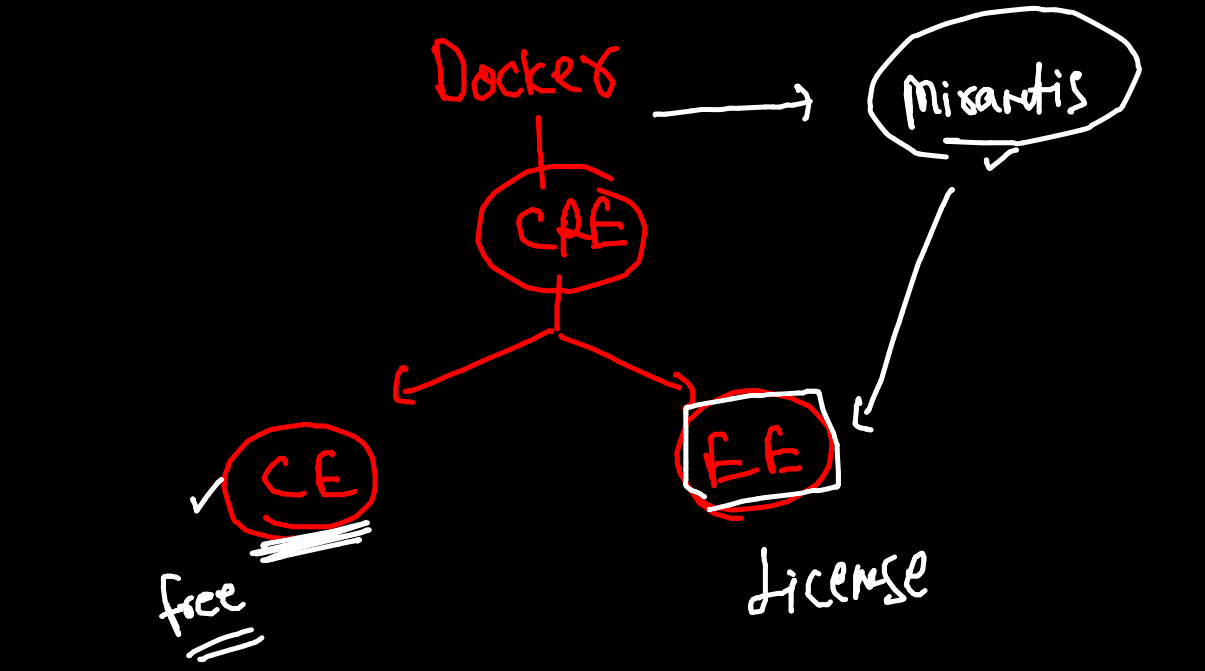 Docker
Mirantis
CRE
CE
EE
free
License